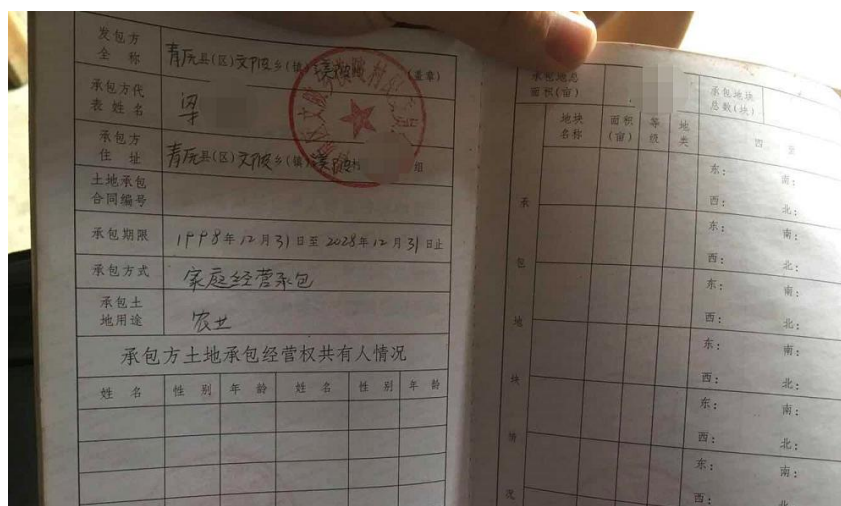 发包方
全称 青原县(区)文陂乡(镇)渼陂村 (盖章)
承包方代
表姓名 梁
承包方
住址 青原县(区)文陂乡(镇)渼陂村 组
土地承包
合同编号
承包期限 1998年12月31日至2028年12月31日止
承包方式 家庭经营承包
承包土
地用途 农业
承包方土地承包经营权共有人情况
姓名 性别 年龄 姓名 性别 年龄
承包地总
面积(亩)
承包地块
总数(块)
地块
名称 面积
(亩) 等
级 地
类 四至
承包地块情况
东: 南:
西: 北:
东: 南:
西: 北:
东: 南:
西: 北:
东: 南:
西: 北:
东: 南:
西: 北:
东: 南:
西: 北: